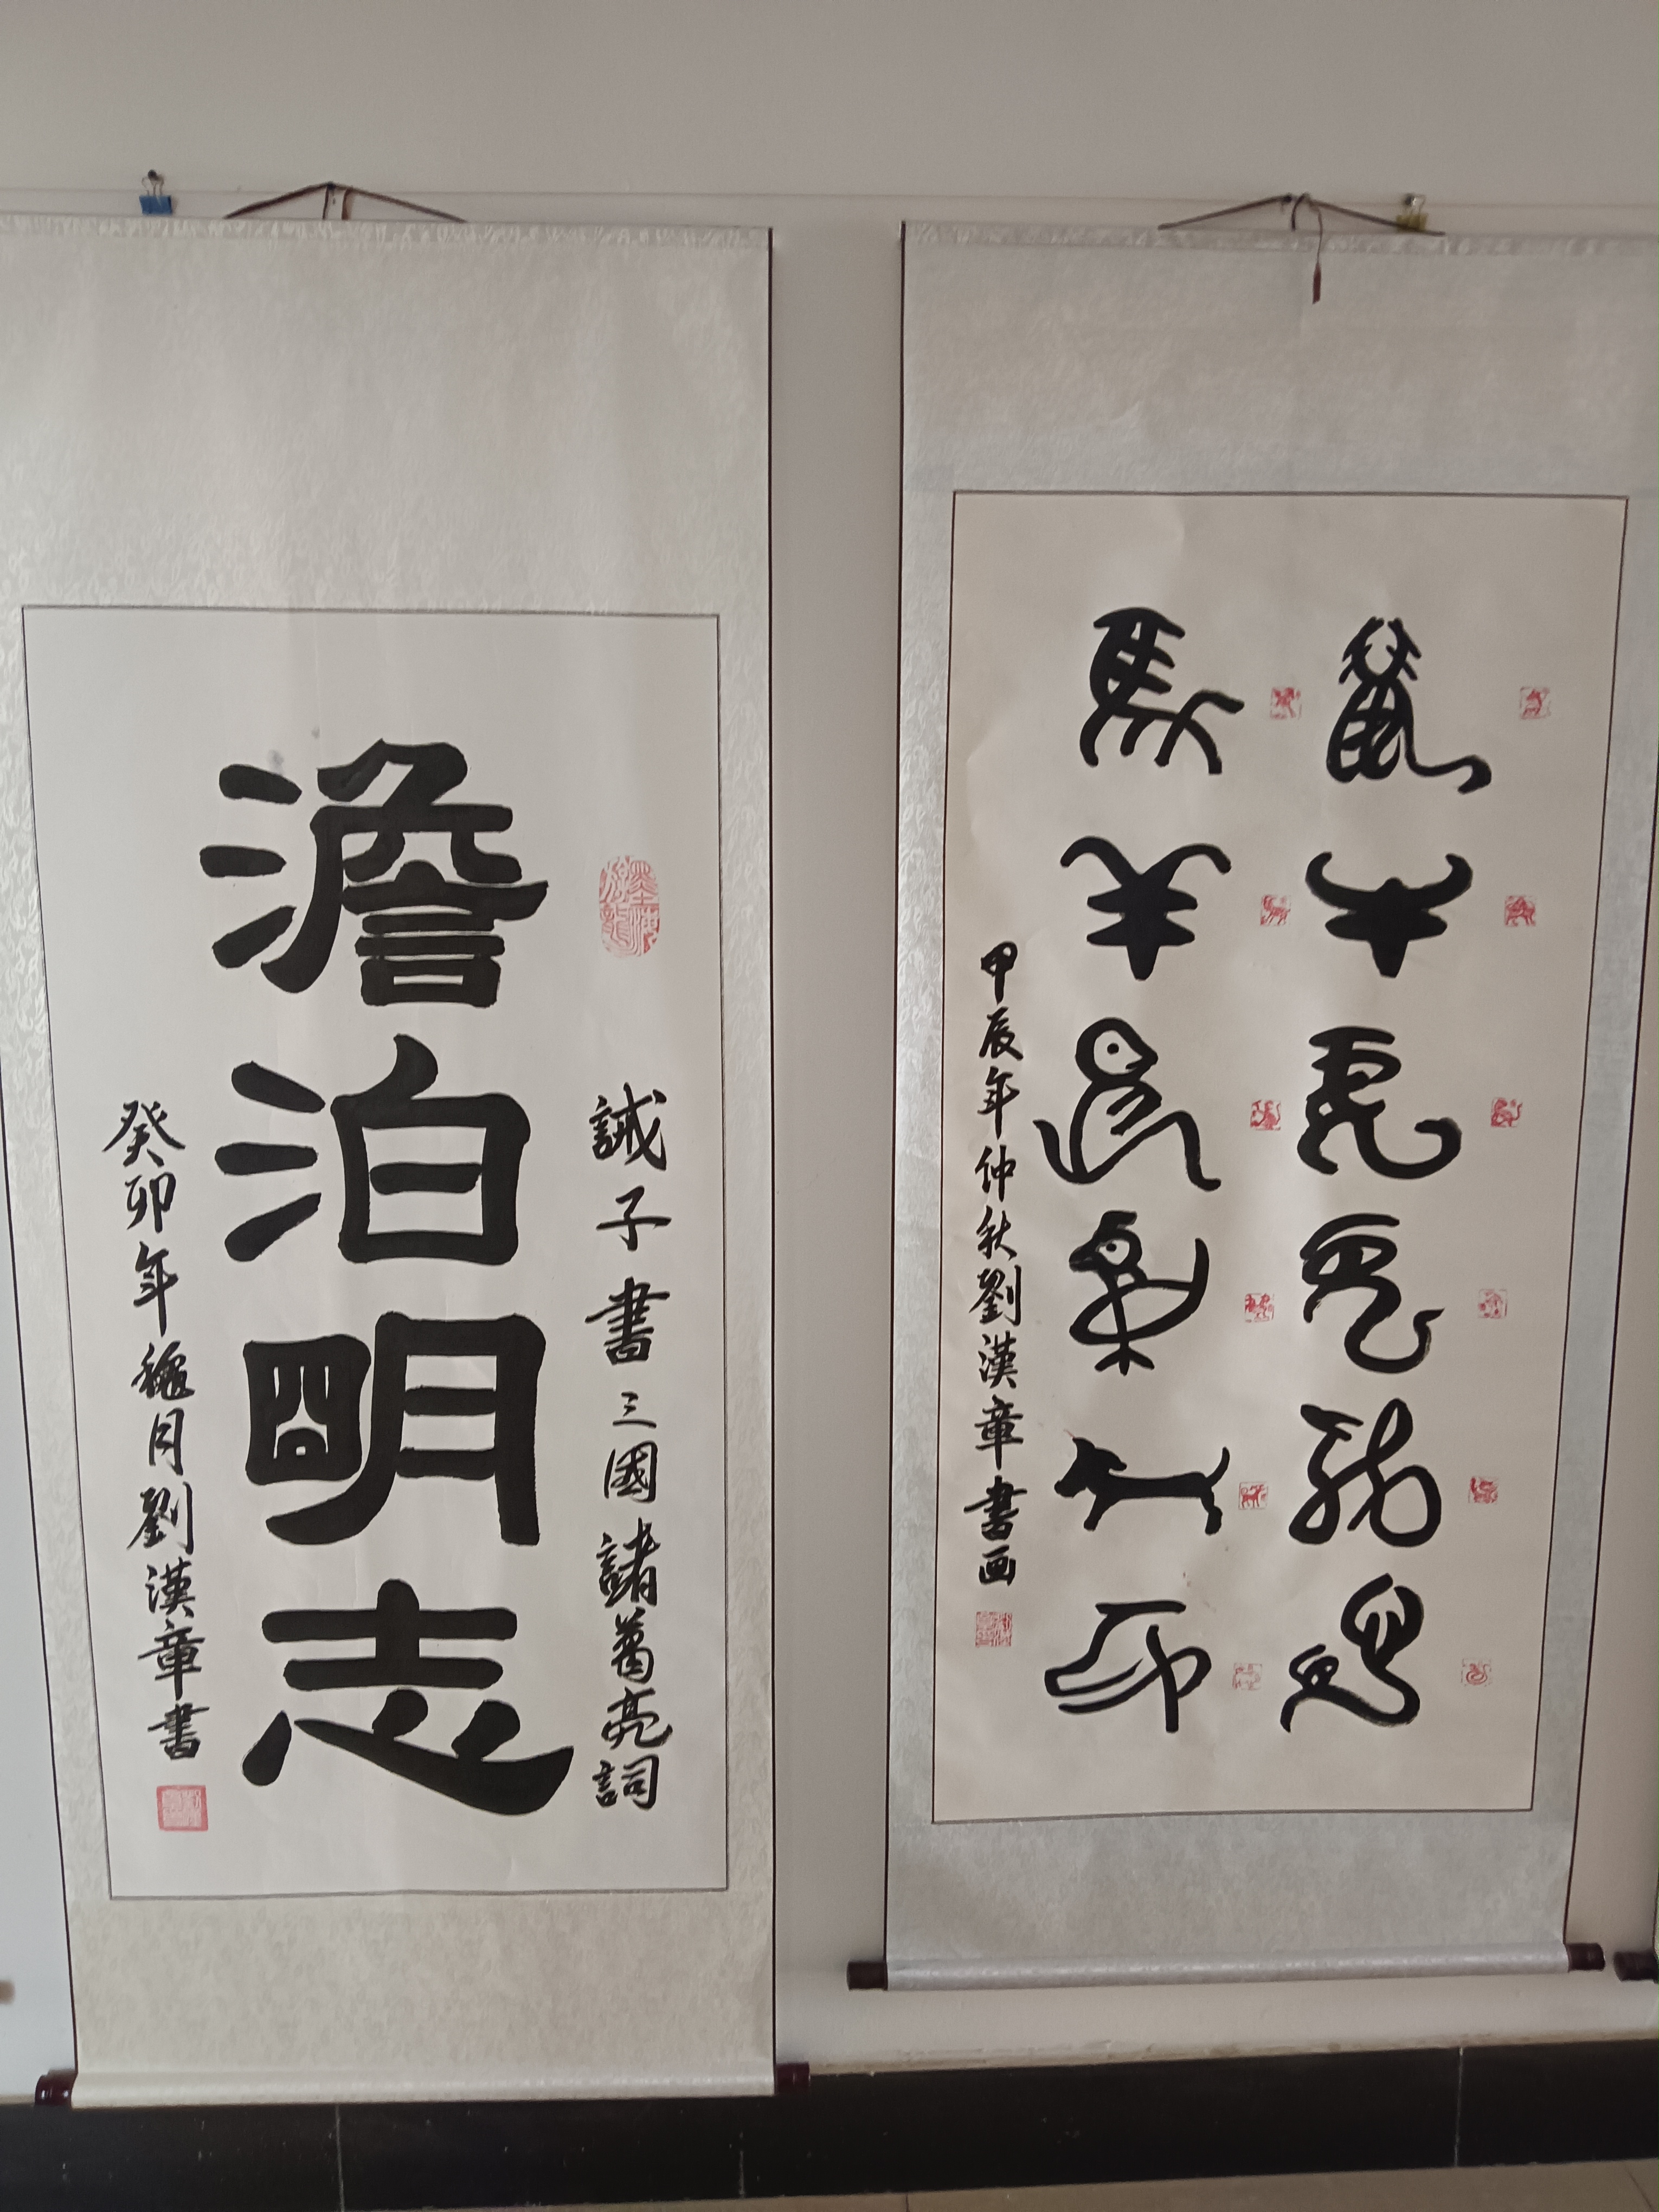 誡子書三國諸葛亮詞
墨海游龍
澹泊朙志
癸卯年穐月劉漢章書
鼠牛虎兔龍蛇
馬羊猴鷄狗豕
甲辰年仲秋劉漢章書画